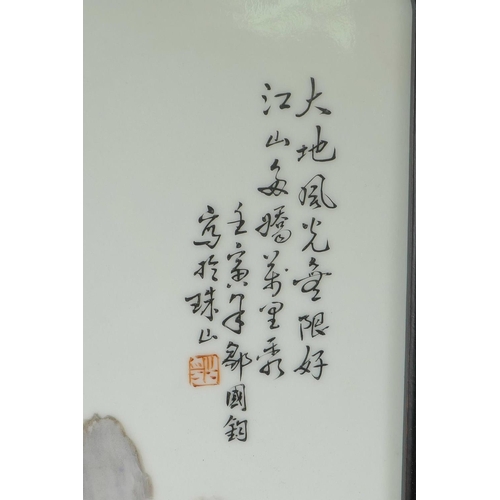 大地風光無限好
江山多嬌萬里霞
壬寅年鄒國鈞
寫於珠山